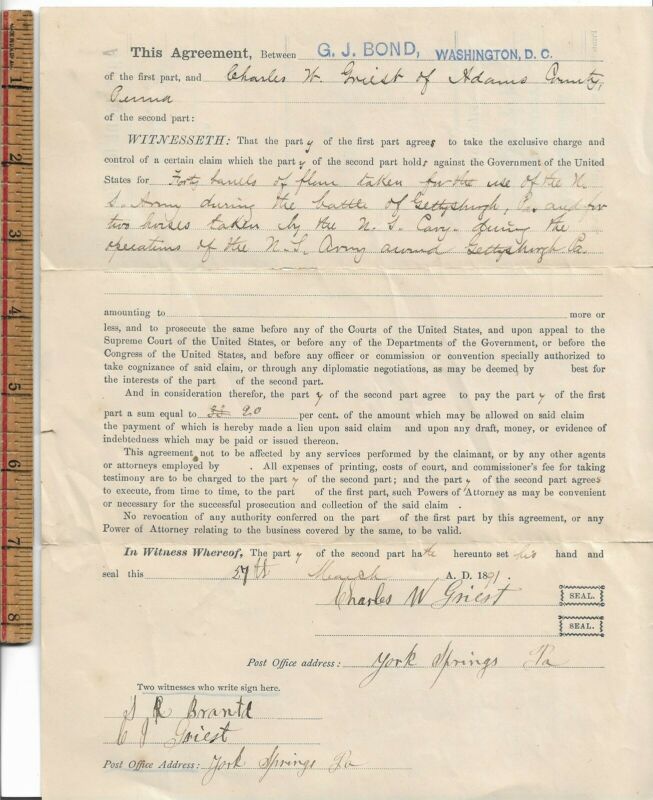 This Agreement, Between G. J. BOND, WASHINGTON, D. C.
of the first part, and Charles W. Griest of Adams County,
Penna
of the second part:
WITNESSETH: That the party of the first part agrees to take the exclusive charge and
control of a certain claim which the party of the second part holds against the Government of the United
States for Forty barrels of flour taken for the use of the U.
S. Army during the battle of Gettysburgh, Pa. and for
two horses taken by the U. S. Cavy. during the
operations of the U. S. Army around Gettysburgh Pa.
amounting to more or
less, and to prosecute the same before any of the Courts of the United States, and upon appeal to the
Supreme Court of the United States, or before any of the Departments of the Government, or before the
Congress of the United States, and before any officer or commission or convention specially authorized to
take cognizance of said claim, or through any diplomatic negotiations, as may be deemed by best for
the interests of the part of the second part.
And in consideration therefor, the party of the second part agree to pay the party of the first
part a sum equal to 20 per cent. of the amount which may be allowed on said claim
the payment of which is hereby made a lien upon said claim and upon any draft, money, or evidence of
indebtedness which may be paid or issued thereon.
This agreement not to be affected by any services performed by the claimant, or by any other agents
or attorneys employed by . All expenses of printing, costs of court, and commissioner's fee for taking
testimony are to be charged to the party of the second part; and the party of the second part agrees
to execute, from time to time, to the part of the first part, such Powers of Attorney as may be convenient
or necessary for the successful prosecution and collection of the said claim .
No revocation of any authority conferred on the part of the first part by this agreement, or any
Power of Attorney relating to the business covered by the same, to be valid.
In Witness Whereof, The party of the second part hath hereunto set his hand and
seal this 27th March A. D. 1891.
Charles W Griest SEAL.
SEAL.
Post Office address: York Springs Pa
Two witnesses who write sign here.
S R Brantd
C J Griest
Post Office Address: York Springs Pa